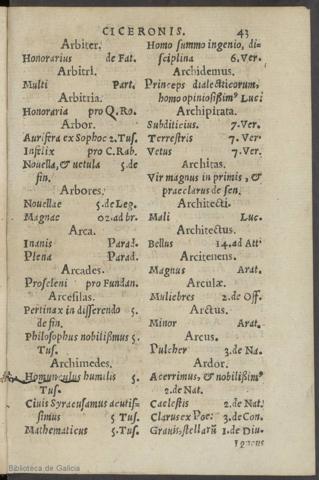 CICERONIS. 43
Arbiter.
Honorarius de Fat.
Arbitri.
Multi Part.
Arbitria.
Honoraria pro Q. Ro.
Arbor.
Aurifera ex Sophoc 2. Tus.
Infelix pro C. Rab.
Nouella, & uetula 5. de
fin.
Arbores.
Nouellae 5. de Leg.
Magnae 02. ad br.
Arca.
Inanis Parad.
Plena Parad.
Arcades.
Proseleni pro Fundan.
Arcesilas.
Pertinax in disserendo 5.
de fin.
Philosophus nobilißimus 5.
Tus.
Archimedes.
Homunculus humilis 5.
Tus.
Ciuis Syracusamus acutis-
simus 5 Tus.
Mathematicus 5. Tus.
Homo summo ingenio, di-
sciplina 6. Ver.
Archidemus.
Princeps dialecticorum,
homo opiniosißimꝰ Luc:
Archipirata.
Subditicius. 7. Ver.
Terrestris 7. Ver
Vetus 7. Ver.
Architas.
Vir magnus in primis, &
praeclarus de sen.
Architecti.
Mali Luc.
Architectus.
Bellus 14. ad Att.
Arcitenens.
Magnus Arat.
Arculæ.
Muliebres 2. de Off.
Arctus.
Minor Arat.
Arcus.
Pulcher 3. de Na.
Ardor.
Acerrimus, & nobilißimꝰ
2. de Nat.
Caelestis 2. de Nat.
Clarus ex Poe: 3. de Con.
Grauis, stellarũ 1. de Diu.
Igneus
Biblioteca de Galicia